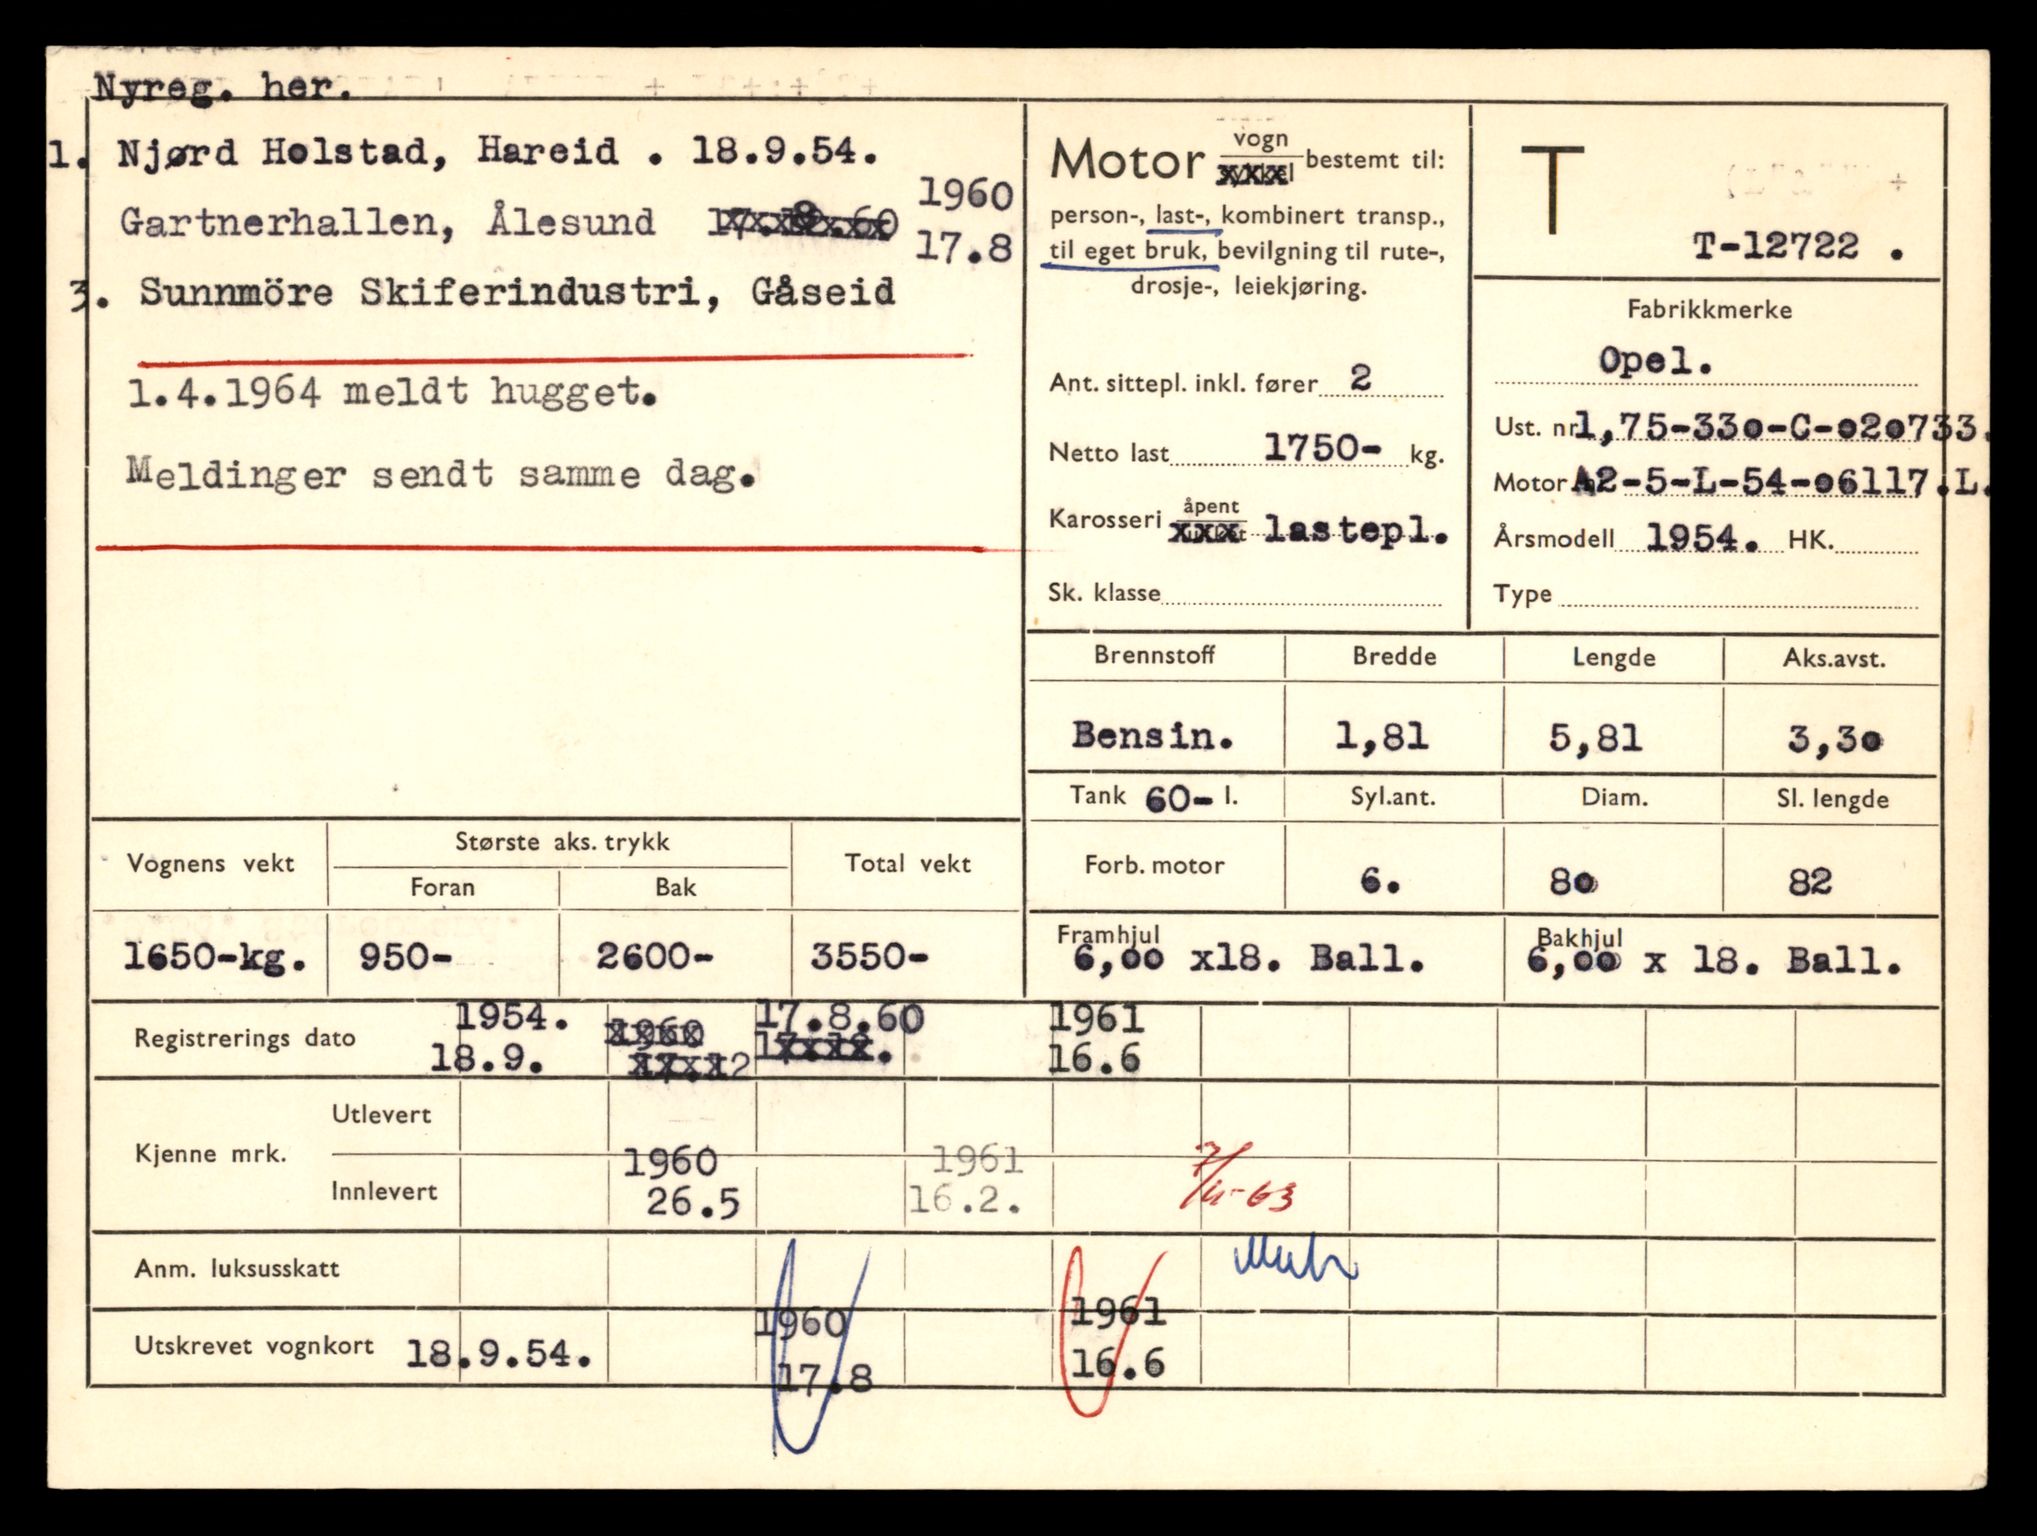 Nyreg. her.
1. Njørd Holstad, Hareid . 18.9.54.
Gartnerhallen, Ålesund 1960
17.8
3. Sunnmöre Skiferindustri, Gåseid
1.4.1964 meldt hugget.
Meldinger sendt samme dag.
Motor vogn bestemt til:
person-, last-, kombinert transp.,
til eget bruk, bevilgning til rute-,
drosje-, leiekjøring.
Ant. sittepl. inkl. fører 2
Netto last 1750- kg.
Karosseri åpent lastepl.
Sk. klasse
T
T-12722 .
Fabrikkmerke
Opel.
Ust. nr 1,75-330-C-020733.
Motor A2-5-L-54-06117.L.
Årsmodell 1954. HK.
Type
Brennstoff Bredde Lengde Aks.avst.
Bensin. 1,81 5,81 3,30
Tank 60- l. Syl.ant. Diam. Sl. lengde
Forb. motor 6. 80 82
Framhjul Bakhjul
6,00 x18. Ball. 6,00 x 18. Ball.
Vognens vekt Største aks. trykk Total vekt
Foran Bak
1650-kg. 950- 2600- 3550-
Registrerings dato 1954. 17.8.60 1961
18.9. 16.6
Kjenne mrk. Utlevert
Innlevert 1960 1961 7/11-63
26.5 16.2.
Anm. luksusskatt
Utskrevet vognkort 18.9.54. 1960 1961
17.8 16.6